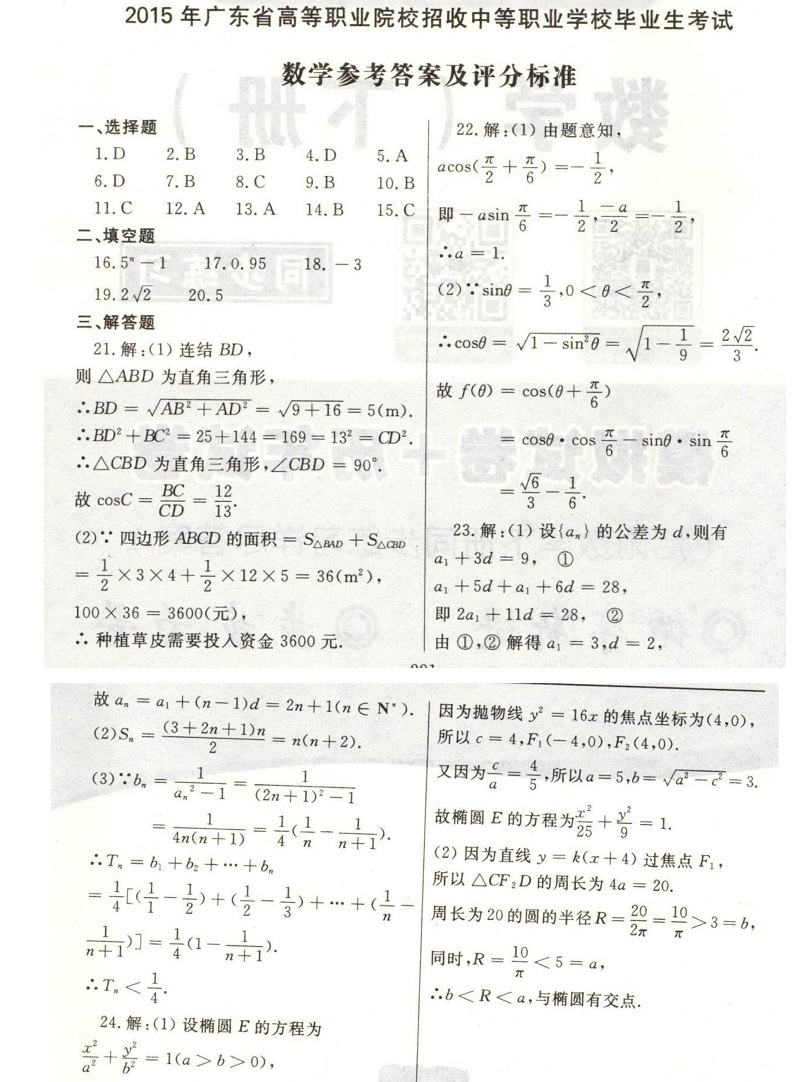 2015年广东省高等职业院校招收中等职业学校毕业生考试
数学参考答案及评分标准
一、选择题
1. D 2. B 3. B 4. D 5. A
6. D 7. B 8. C 9. B 10. B
11. C 12. A 13. A 14. B 15. C
二、填空题
16. 5ⁿ－1 17. 0.95 18. －3
19. 2√2 20. 5
三、解答题
21. 解:(1) 连结 BD,
则 △ABD 为直角三角形,
∴BD = √(AB²＋AD²) = √(9＋16) = 5(m).
∴BD²＋BC² = 25＋144 = 169 = 13² = CD².
∴△CBD 为直角三角形,∠CBD = 90°.
故 cosC = BC/CD = 12/13.
(2)∵ 四边形 ABCD 的面积 = S△BAD ＋ S△CBD
= 1/2×3×4＋1/2×12×5 = 36(m²),
100×36 = 3600(元),
∴ 种植草皮需要投入资金 3600 元.
22. 解:(1) 由题意知,
acos(π/2＋π/6) =－1/2,
即－asin π/6 =－1/2, －a/2 =－1/2,
∴a = 1.
(2)∵sinθ = 1/3, 0＜θ＜π/2,
∴cosθ = √(1－sin²θ) = √(1－1/9) = 2√2/3.
故 f(θ) = cos(θ＋π/6)
= cosθ·cos π/6－sinθ·sin π/6
= √6/3－1/6.
23. 解:(1) 设{aₙ} 的公差为 d,则有
a₁＋3d = 9, ①
a₁＋5d＋a₁＋6d = 28,
即 2a₁＋11d = 28, ②
由 ①,② 解得 a₁ = 3,d = 2,
故 aₙ = a₁＋(n－1)d = 2n＋1(n∈N*).
(2)Sₙ = (3＋2n＋1)n/2 = n(n＋2).
(3)∵bₙ = 1/(aₙ²－1) = 1/((2n＋1)²－1)
= 1/(4n(n＋1)) = 1/4(1/n－1/(n＋1)).
∴Tₙ = b₁＋b₂＋…＋bₙ
= 1/4[(1/1－1/2)＋(1/2－1/3)＋…＋(1/n－
1/(n＋1))] = 1/4(1－1/(n＋1)).
∴Tₙ＜1/4.
24. 解:(1) 设椭圆 E 的方程为
x²/a²＋y²/b² = 1(a＞b＞0),
因为抛物线 y² = 16x 的焦点坐标为(4,0),
所以 c = 4,F₁(－4,0),F₂(4,0).
又因为 c/a = 4/5,所以 a = 5,b = √(a²－c²) = 3.
故椭圆 E 的方程为 x²/25＋y²/9 = 1.
(2) 因为直线 y = k(x＋4) 过焦点 F₁,
所以 △CF₂D 的周长为 4a = 20.
周长为 20 的圆的半径 R = 20/2π = 10/π＞3 = b,
同时,R = 10/π＜5 = a,
∴b＜R＜a,与椭圆有交点.